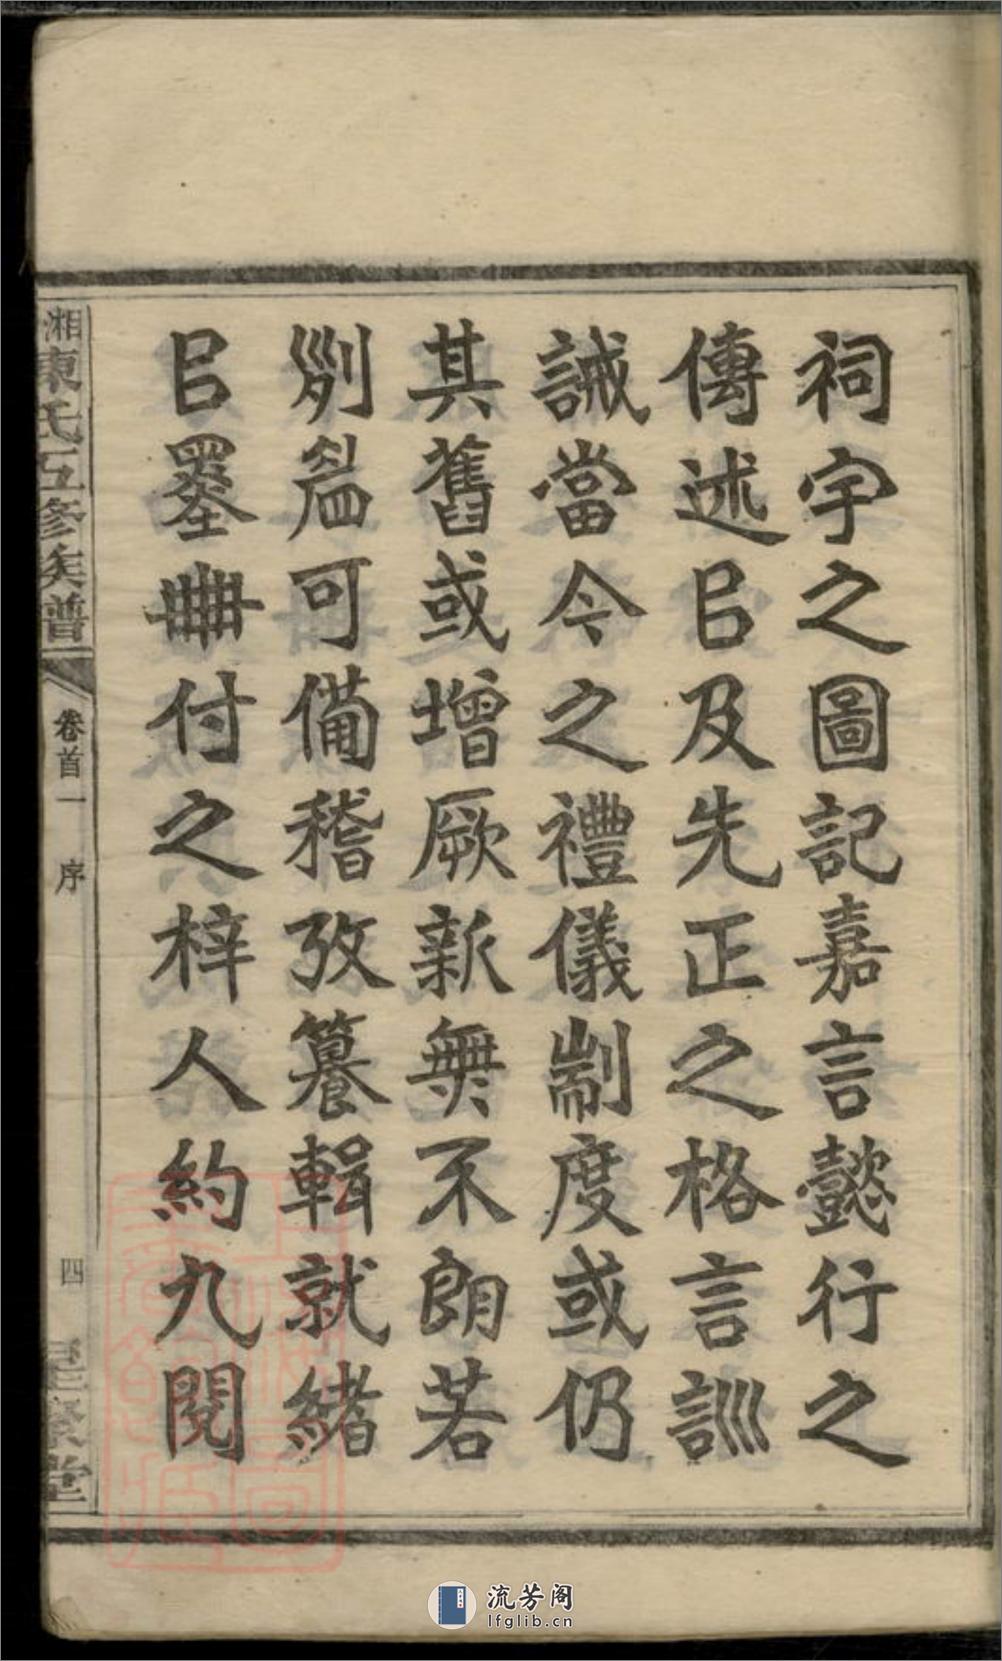 祠宇之圖記嘉言懿行之
傳述㠯及先正之格言訓
誡當今之禮儀制度或仍
其舊或增厥新無不朗若
列眉可備稽攷纂輯就緒
㠯墨冊付之梓人約九閱
湘東氏五修族譜
卷首一 序
四
堂
流芳阁
lfglib.cn